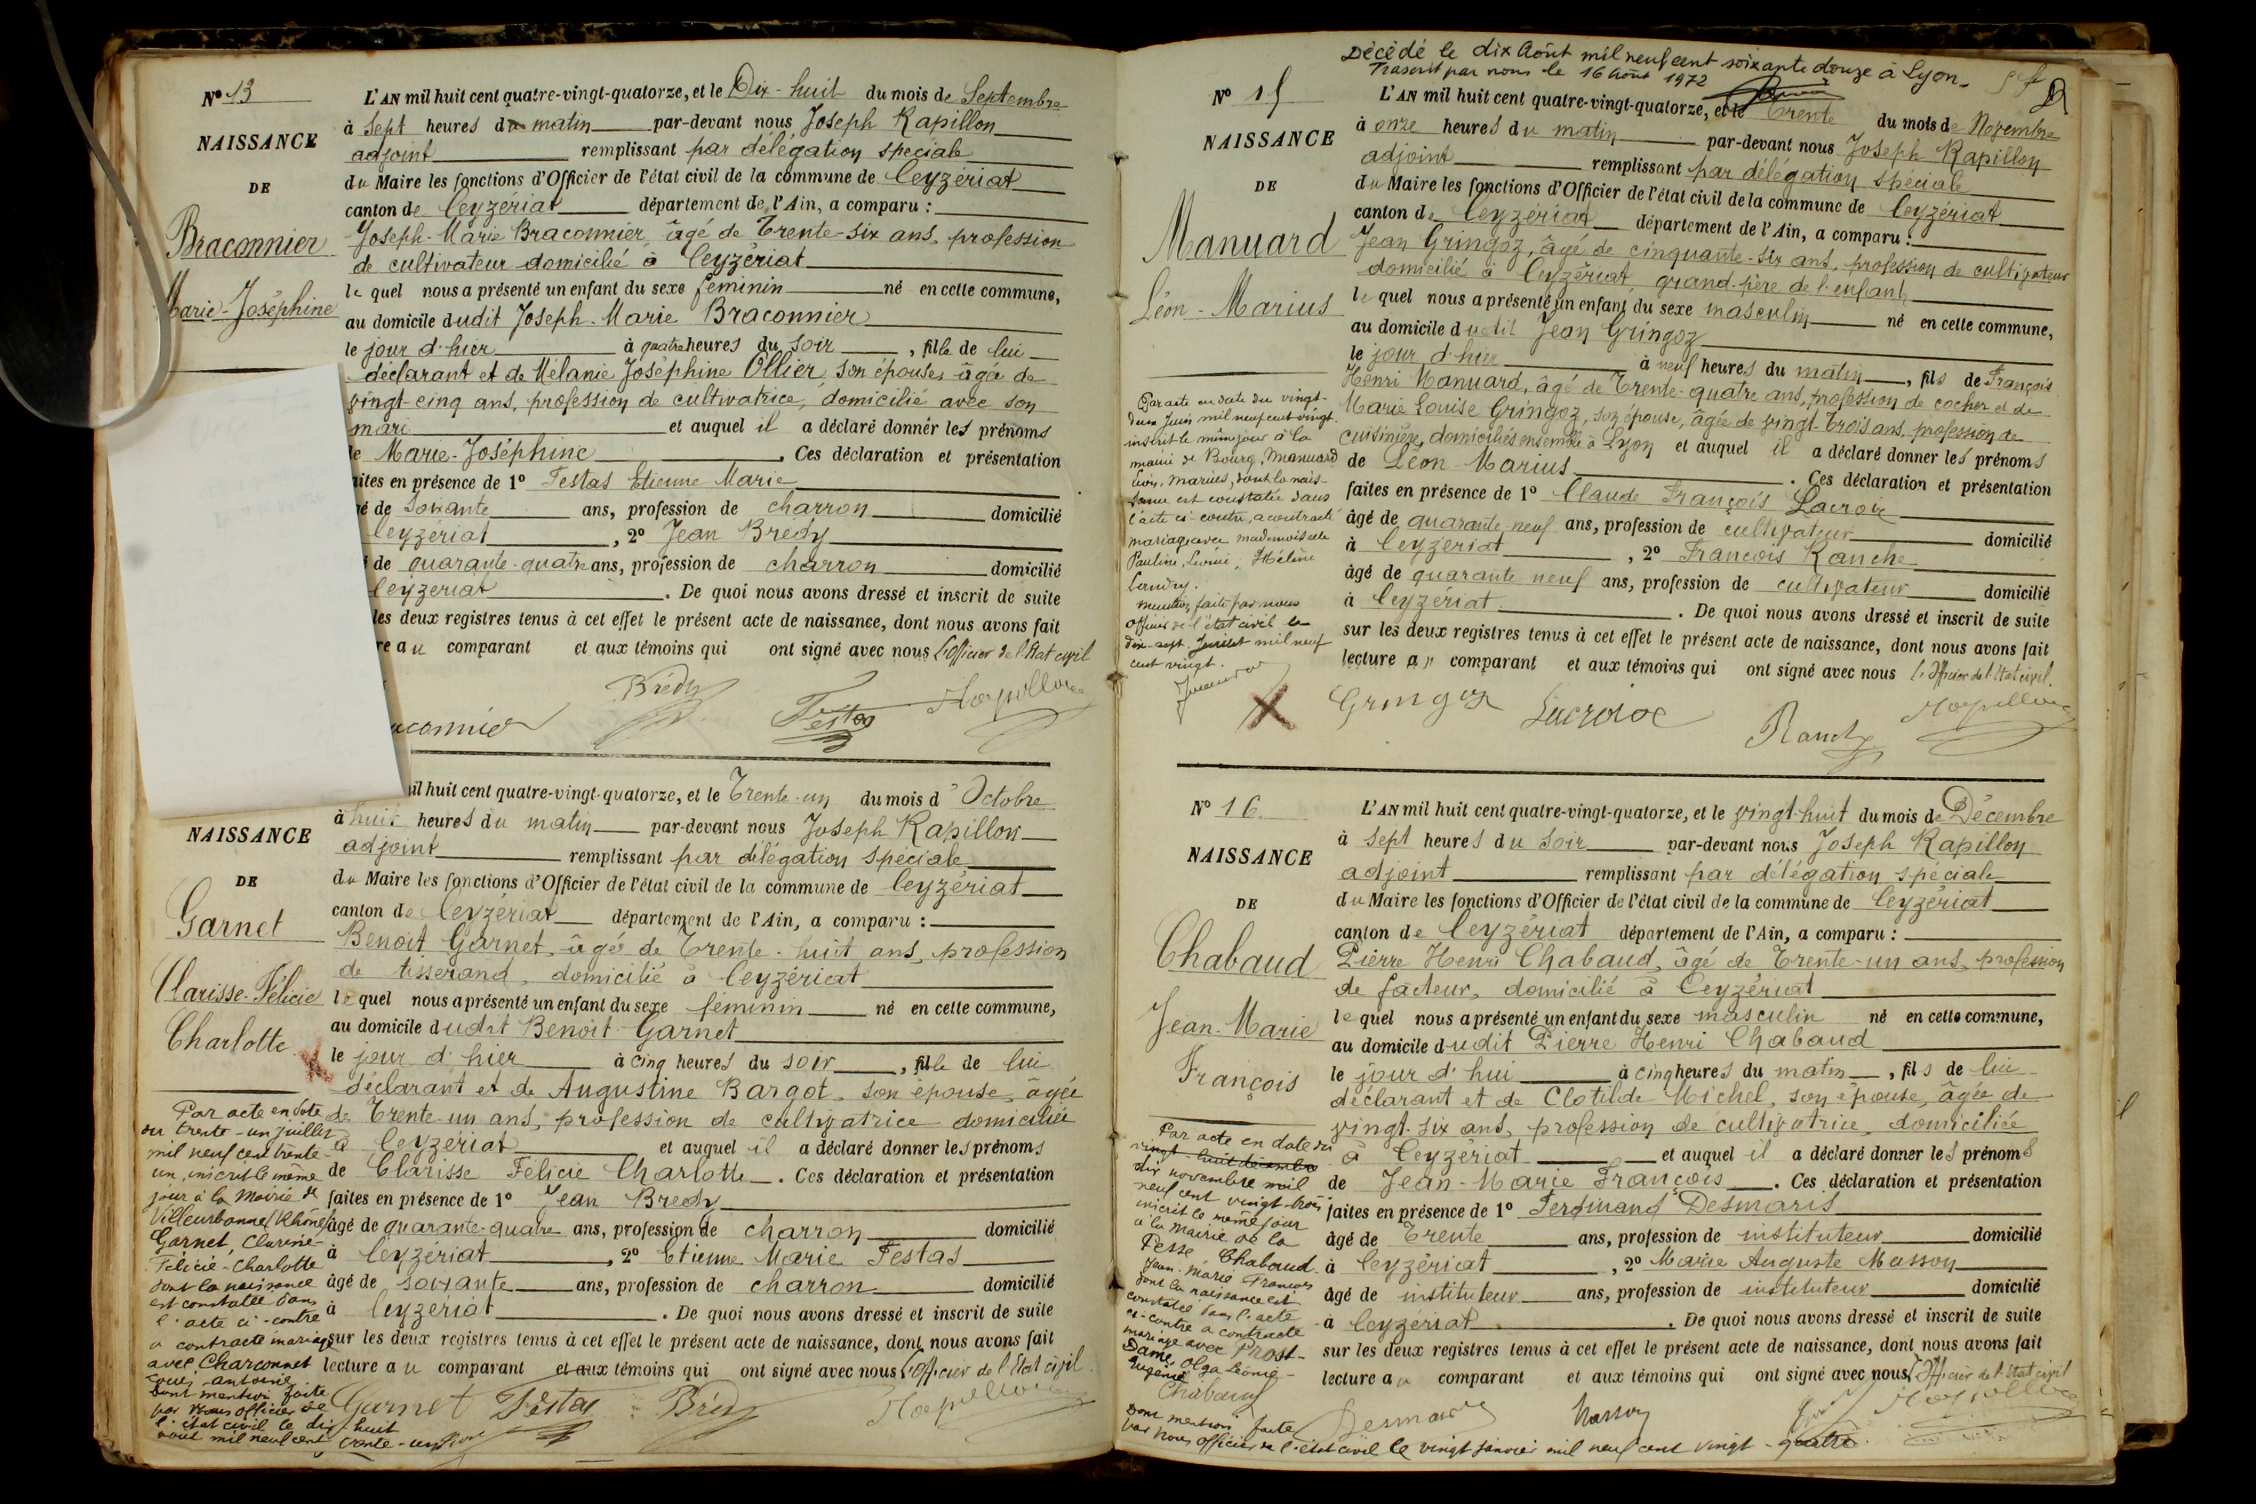 N° 13
NAISSANCE
DE
Braconnier
Marie-Joséphine
L'AN mil huit cent quatre-vingt-quatorze, et le Dix-huit du mois de Septembre
à sept heures du matin par-devant nous Joseph Rapillon
adjoint remplissant par délégation spéciale
du Maire les fonctions d'Officier de l'état civil de la commune de Ceyzériat
canton de Ceyzériat département de l'Ain, a comparu :
Joseph-Marie Braconnier, âgé de Trente-six ans, profession
de cultivateur domicilié à Ceyzériat
le quel nous a présenté un enfant du sexe féminin né en cette commune,
au domicile dudit Joseph-Marie Braconnier
le jour d'hier à quatre heures du soir, fille de lui
déclarant et de Mélanie Joséphine Ollier, son épouse, âgée de
vingt-cinq ans, profession de cultivatrice, domicilié avec son
mari et auquel il a déclaré donner les prénoms
de Marie-Joséphine. Ces déclaration et présentation
aites en présence de 1° Festas Etienne Marie
gé de soixante ans, profession de charron domicilié
Ceyzériat, 2° Jean Bredy
de quarante-quatre ans, profession de charron domicilié
Ceyzériat. De quoi nous avons dressé et inscrit de suite
les deux registres tenus à cet effet le présent acte de naissance, dont nous avons fait
re au comparant et aux témoins qui ont signé avec nous l'Officier de l'état civil
Brédy Festas Rapillon
aconnier
NAISSANCE
DE
Garnet
Clarisse-Félicie
Charlotte
il huit cent quatre-vingt-quatorze, et le Trente-un du mois d'Octobre
à huit heures du matin par-devant nous Joseph Rapillon
adjoint remplissant par délégation spéciale
du Maire les fonctions d'Officier de l'état civil de la commune de Ceyzériat
canton de Ceyzériat département de l'Ain, a comparu :
Benoit Garnet, âgé de Trente-huit ans, profession
de tisserand, domicilié à Ceyzériat
le quel nous a présenté un enfant du sexe féminin né en cette commune,
au domicile dudit Benoit Garnet
le jour d'hier à cinq heures du soir, fille de lui
déclarant et de Augustine Bargot, son épouse, âgée
de Trente-un ans, profession de cultivatrice domiciliée
à Ceyzériat et auquel il a déclaré donner les prénoms
de Clarisse Félicie Charlotte. Ces déclaration et présentation
faites en présence de 1° Jean Bredy
âgé de quarante-quatre ans, profession de charron domicilié
à Ceyzériat, 2° Etienne Marie Festas
âgé de soixante ans, profession de charron domicilié
à Ceyzériat. De quoi nous avons dressé et inscrit de suite
sur les deux registres tenus à cet effet le présent acte de naissance, dont nous avons fait
lecture au comparant et aux témoins qui ont signé avec nous l'Officier de l'Etat civil
Garnet Festas Brédy Rapillon
Par acte en date
du trente-un juillet
mil neuf cent trente-
un, inscrit le même
jour à la Mairie de
Villeurbanne (Rhône)
Garnet, Clarisse-
Félicie-Charlotte
dont la naissance
est constatée dans
l'acte ci-contre
a contracté mariage
avec Charconnet
Louis Antoine
Dont mention faite
par Nous officier de
l'état civil le dix huit
août mil neuf cent trente-un
Décédé le dix Août mil neuf cent soixante douze à Lyon.
Transcrit par nous le 16 Août 1972
N° 15
NAISSANCE
DE
Manuard
Léon-Marius
L'AN mil huit cent quatre-vingt-quatorze, et le Trente du mois de Novembre
à onze heures du matin par-devant nous Joseph Rapillon
adjoint remplissant par délégation spéciale
du Maire les fonctions d'Officier de l'état civil de la commune de Ceyzériat
canton de Ceyzériat département de l'Ain, a comparu :
Jean Gringoz, âgé de cinquante-six ans, profession de cultivateur
domicilié à Ceyzériat, grand-père de l'enfant
le quel nous a présenté un enfant du sexe masculin né en cette commune,
au domicile dudit Jean Gringoz
le jour d'hier à neuf heures du matin, fils de François
Henri Manuard, âgé de Trente-quatre ans, profession de cocher et de
Marie Louise Gringoz, son épouse, âgée de vingt-trois ans, profession de
cuisinière, domiciliés ensemble à Lyon et auquel il a déclaré donner les prénoms
de Léon-Marius. Ces déclaration et présentation
faites en présence de 1° Claude François Lacroix
âgé de quarante-neuf ans, profession de cultivateur domicilié
à Ceyzériat, 2° François Ranche
âgé de quarante neuf ans, profession de cultivateur domicilié
à Ceyzériat. De quoi nous avons dressé et inscrit de suite
sur les deux registres tenus à cet effet le présent acte de naissance, dont nous avons fait
lecture au comparant et aux témoins qui ont signé avec nous l'Officier de l'état civil.
Gringoz Lacroix Ranche Rapillon
Par acte en date du vingt-
deux Juin mil neuf cent vingt,
inscrit le même jour à la
mairie de Bourg, Manuard
Léon, Marius, dont la nais-
sance est constatée dans
l'acte ci-contre, a contracté
mariage avec mademoiselle
Pauline, Hélène
Landry.
Mention faite par nous
Officier de l'état civil le
dix-sept Juillet mil neuf
cent vingt.
N° 16
NAISSANCE
DE
Chabaud
Jean-Marie
François
L'AN mil huit cent quatre-vingt-quatorze, et le vingt-huit du mois de Décembre
à sept heures du soir par-devant nous Joseph Rapillon
adjoint remplissant par délégation spéciale
du Maire les fonctions d'Officier de l'état civil de la commune de Ceyzériat
canton de Ceyzériat département de l'Ain, a comparu :
Pierre Henri Chabaud, âgé de Trente-un ans, profession
de facteur, domicilié à Ceyzériat
le quel nous a présenté un enfant du sexe masculin né en cette commune,
au domicile dudit Pierre Henri Chabaud
le jour d'hui à cinq heures du matin, fils de lui
déclarant et de Clotilde Michel, son épouse, âgée de
vingt-six ans, profession de cultivatrice, domiciliée
à Ceyzériat et auquel il a déclaré donner les prénoms
de Jean-Marie François. Ces déclaration et présentation
faites en présence de 1° Ferdinand Desmaris
âgé de Trente ans, profession de instituteur domicilié
à Ceyzériat, 2° Marie Auguste Masson
âgé de instituteur ans, profession de instituteur domicilié
à Ceyzériat. De quoi nous avons dressé et inscrit de suite
sur les deux registres tenus à cet effet le présent acte de naissance, dont nous avons fait
lecture au comparant et aux témoins qui ont signé avec nous l'Officier de l'état civil
Chabaud Desmaris Masson Rapillon
Par acte en date du
vingt-huit décembre
dix novembre mil
neuf cent vingt-trois
inscrit le même jour
à la Mairie de la
Pesse Chabaud
Jean-Marie François
dont la naissance est
constatée dans l'acte
ci-contre a contracté
mariage avec Prost-
Dame, Olga Léonie-
Eugénie
Dont mention faite
par Nous officier de l'état civil le vingt janvier mil neuf cent vingt-quatre